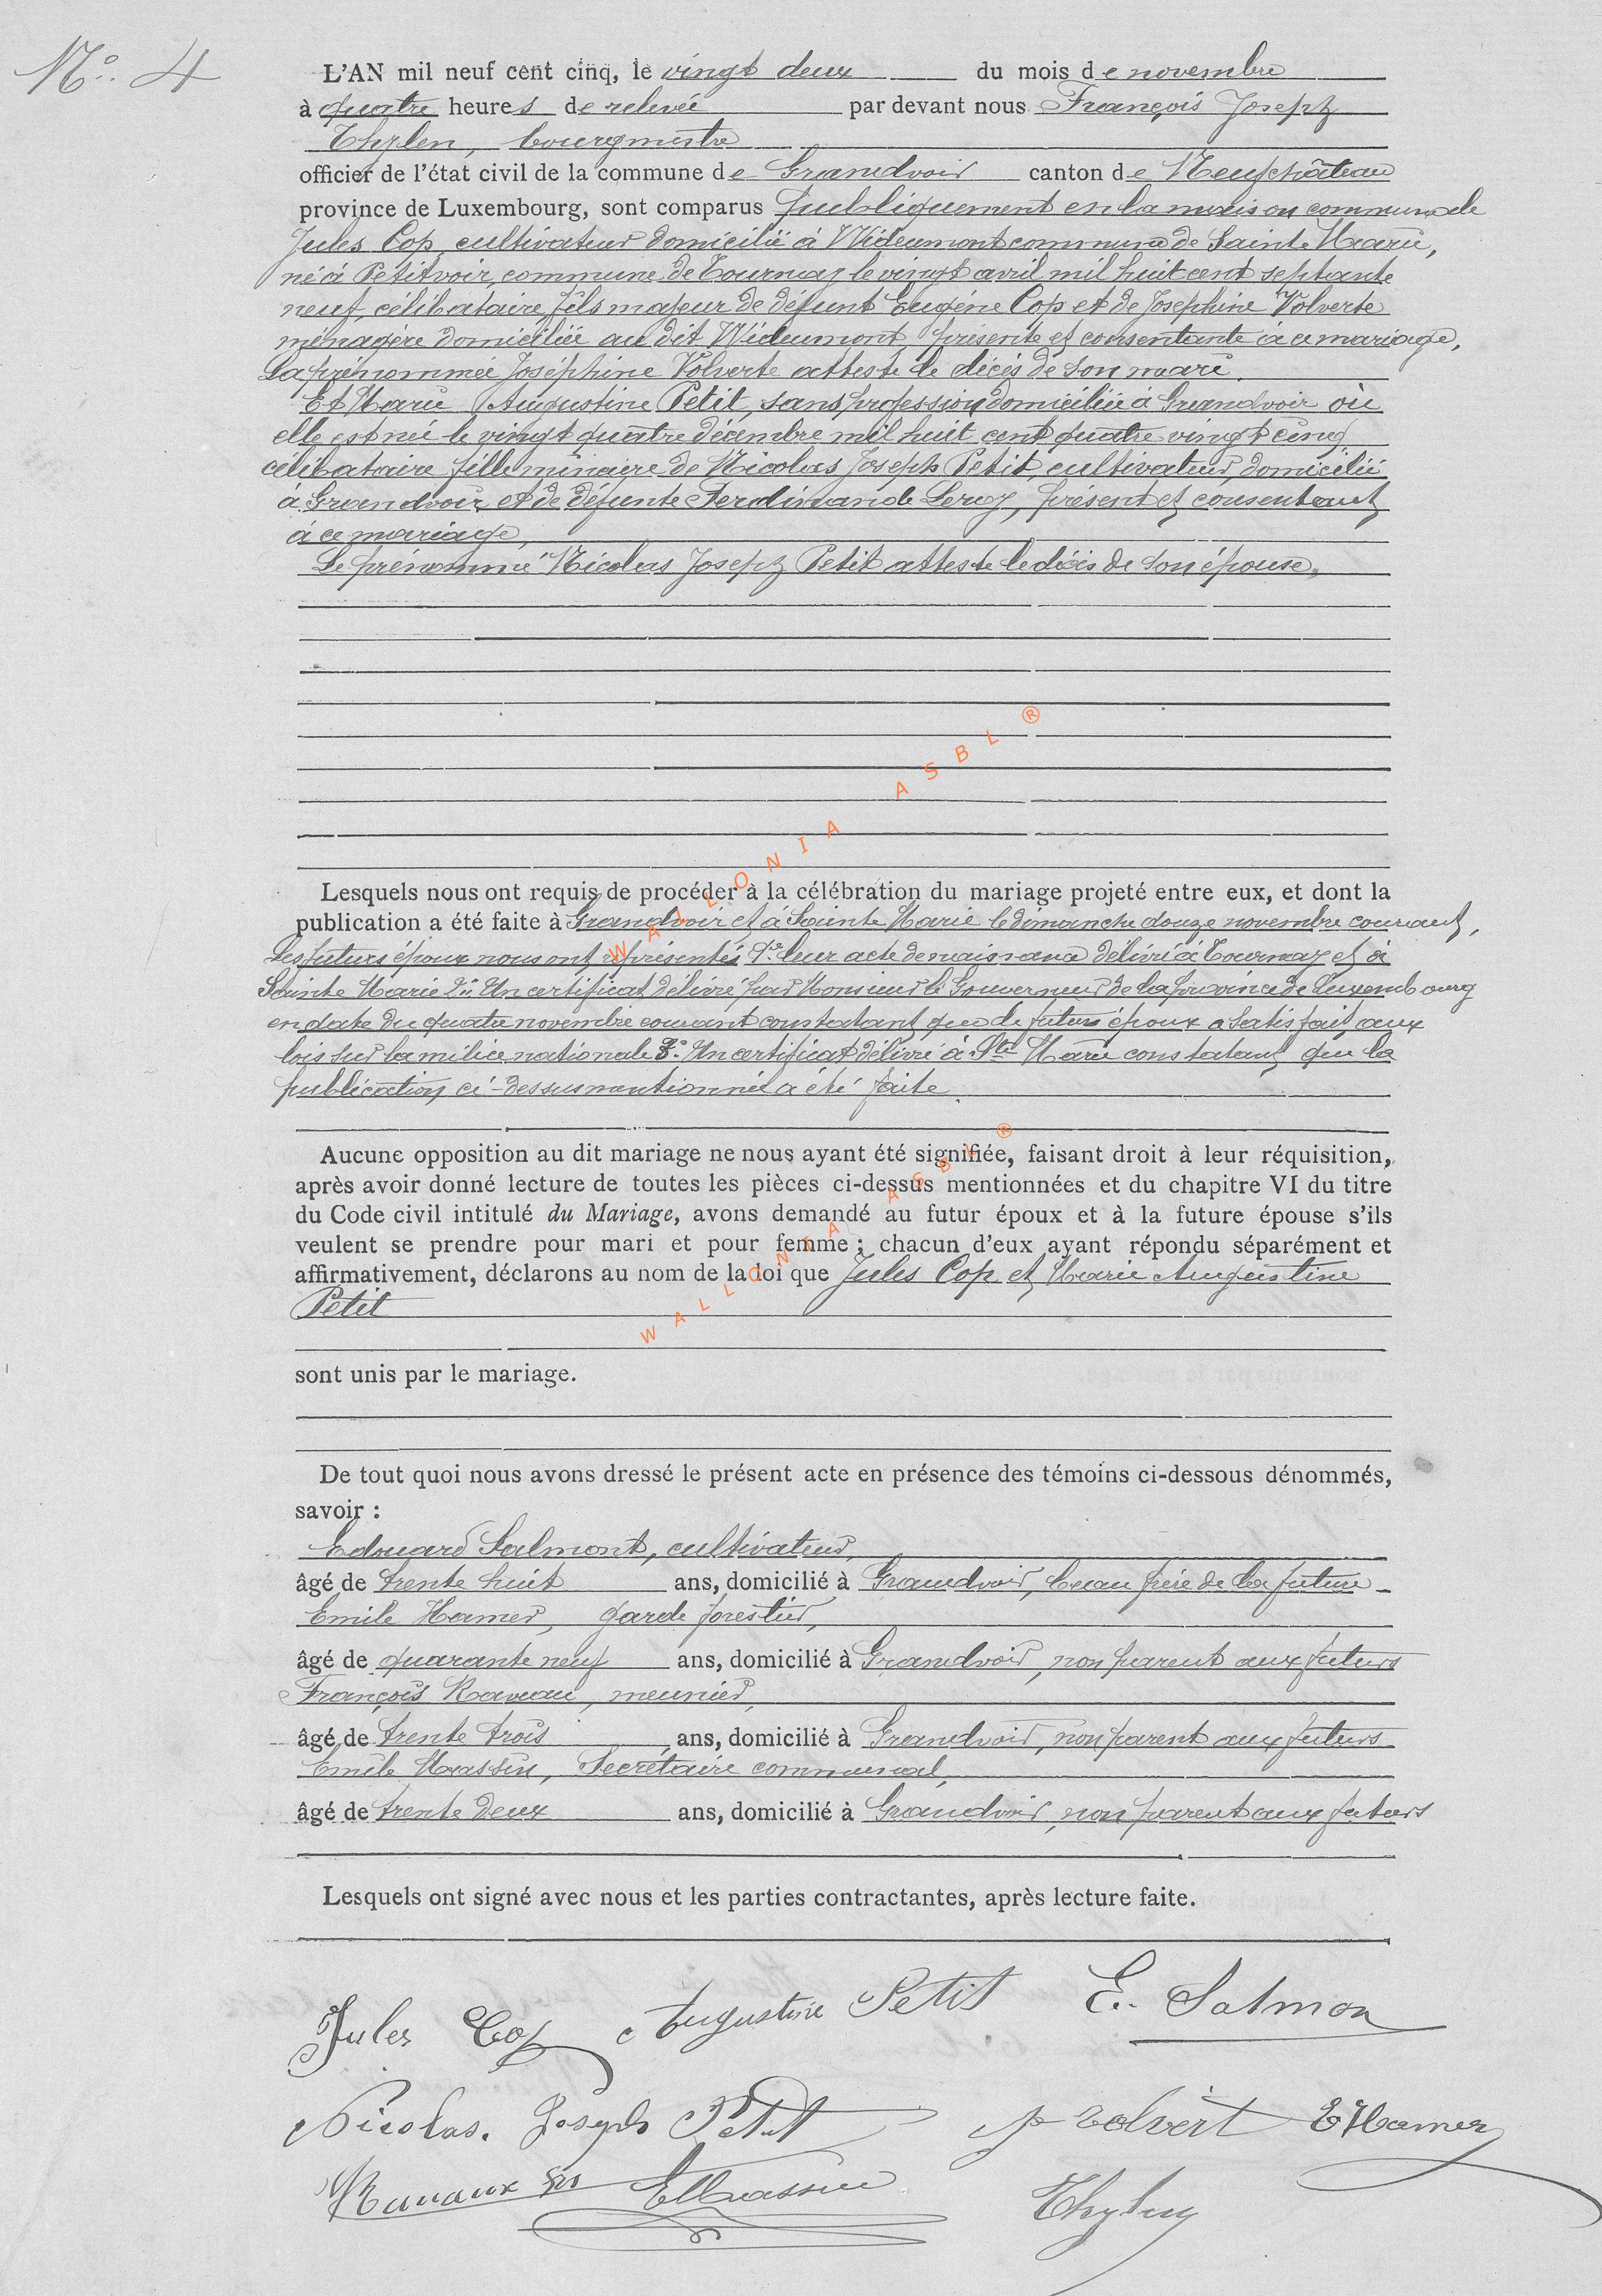 N° 4
L'AN mil neuf cent cinq, le vingt deux du mois de novembre
à quatre heures de relevée par devant nous François Joseph
Thylen, bourgmestre
officier de l'état civil de la commune de Grandvoir canton de Neufchâteau
province de Luxembourg, sont comparus publiquement en la maison communale
Jules Cop, cultivateur domicilié à Wideumont commune de Sainte Marie,
né à Petitvoir, commune de Tournay le vingt avril mil huit cent septante
neuf, célibataire, fils majeur de défunt Eugène Cop et de Joséphine Volverte
ménagère domiciliée au dit Wideumont, présente et consentante à ce mariage,
La prénommée Joséphine Volverte atteste le décès de son mari.
Et Marie Augustine Petit, sans profession domiciliée à Grandvoir où
elle est née le vingt quatre décembre mil huit cent quatre vingt cinq
célibataire fille mineure de Nicolas Joseph Petit, cultivateur, domicilié
à Grandvoir et de défunte Ferdinande Leroy, présent et consentant
à ce mariage,
Le prénommé Nicolas Joseph Petit atteste le décès de son épouse,
Lesquels nous ont requis de procéder à la célébration du mariage projeté entre eux, et dont la
publication a été faite à Grandvoir et à Sainte Marie le dimanche douze novembre courant,
Les futurs époux nous ont représentés 1° leur acte de naissance délivré à Tournay et à
Sainte Marie 2° Un certificat délivré par Monsieur le Gouverneur de la province de Luxembourg
en date du quatre novembre courant constatant que le futur époux a satisfait aux
lois sur la milice nationale 3° Un certificat délivré à Ste Marie constatant que la
publication ci-dessus mentionnée a été faite.
Aucune opposition au dit mariage ne nous ayant été signifiée, faisant droit à leur réquisition,
après avoir donné lecture de toutes les pièces ci-dessus mentionnées et du chapitre VI du titre
du Code civil intitulé du Mariage, avons demandé au futur époux et à la future épouse s'ils
veulent se prendre pour mari et pour femme ; chacun d'eux ayant répondu séparément et
affirmativement, déclarons au nom de la loi que Jules Cop et Marie Augustine
Petit
sont unis par le mariage.
De tout quoi nous avons dressé le présent acte en présence des témoins ci-dessous dénommés,
savoir :
Edouard Salmont, cultivateur,
âgé de trente huit ans, domicilié à Grandvoir, beau frère de la future
Emile Hamer, garde forestier,
âgé de quarante neuf ans, domicilié à Grandvoir, non parent aux futurs
François Raveau, meunier,
âgé de trente trois ans, domicilié à Grandvoir, non parent aux futurs
Emile Massin, Secrétaire communal,
âgé de trente deux ans, domicilié à Grandvoir, non parent aux futurs
Lesquels ont signé avec nous et les parties contractantes, après lecture faite.
Jules Cop Augustine Petit E. Salmon
Nicolas. Joseph Petit J Volvert E Hamer
Ravaux EMassin Thylen
WALLONIA ASBL ®
WALLONIA ASBL ®